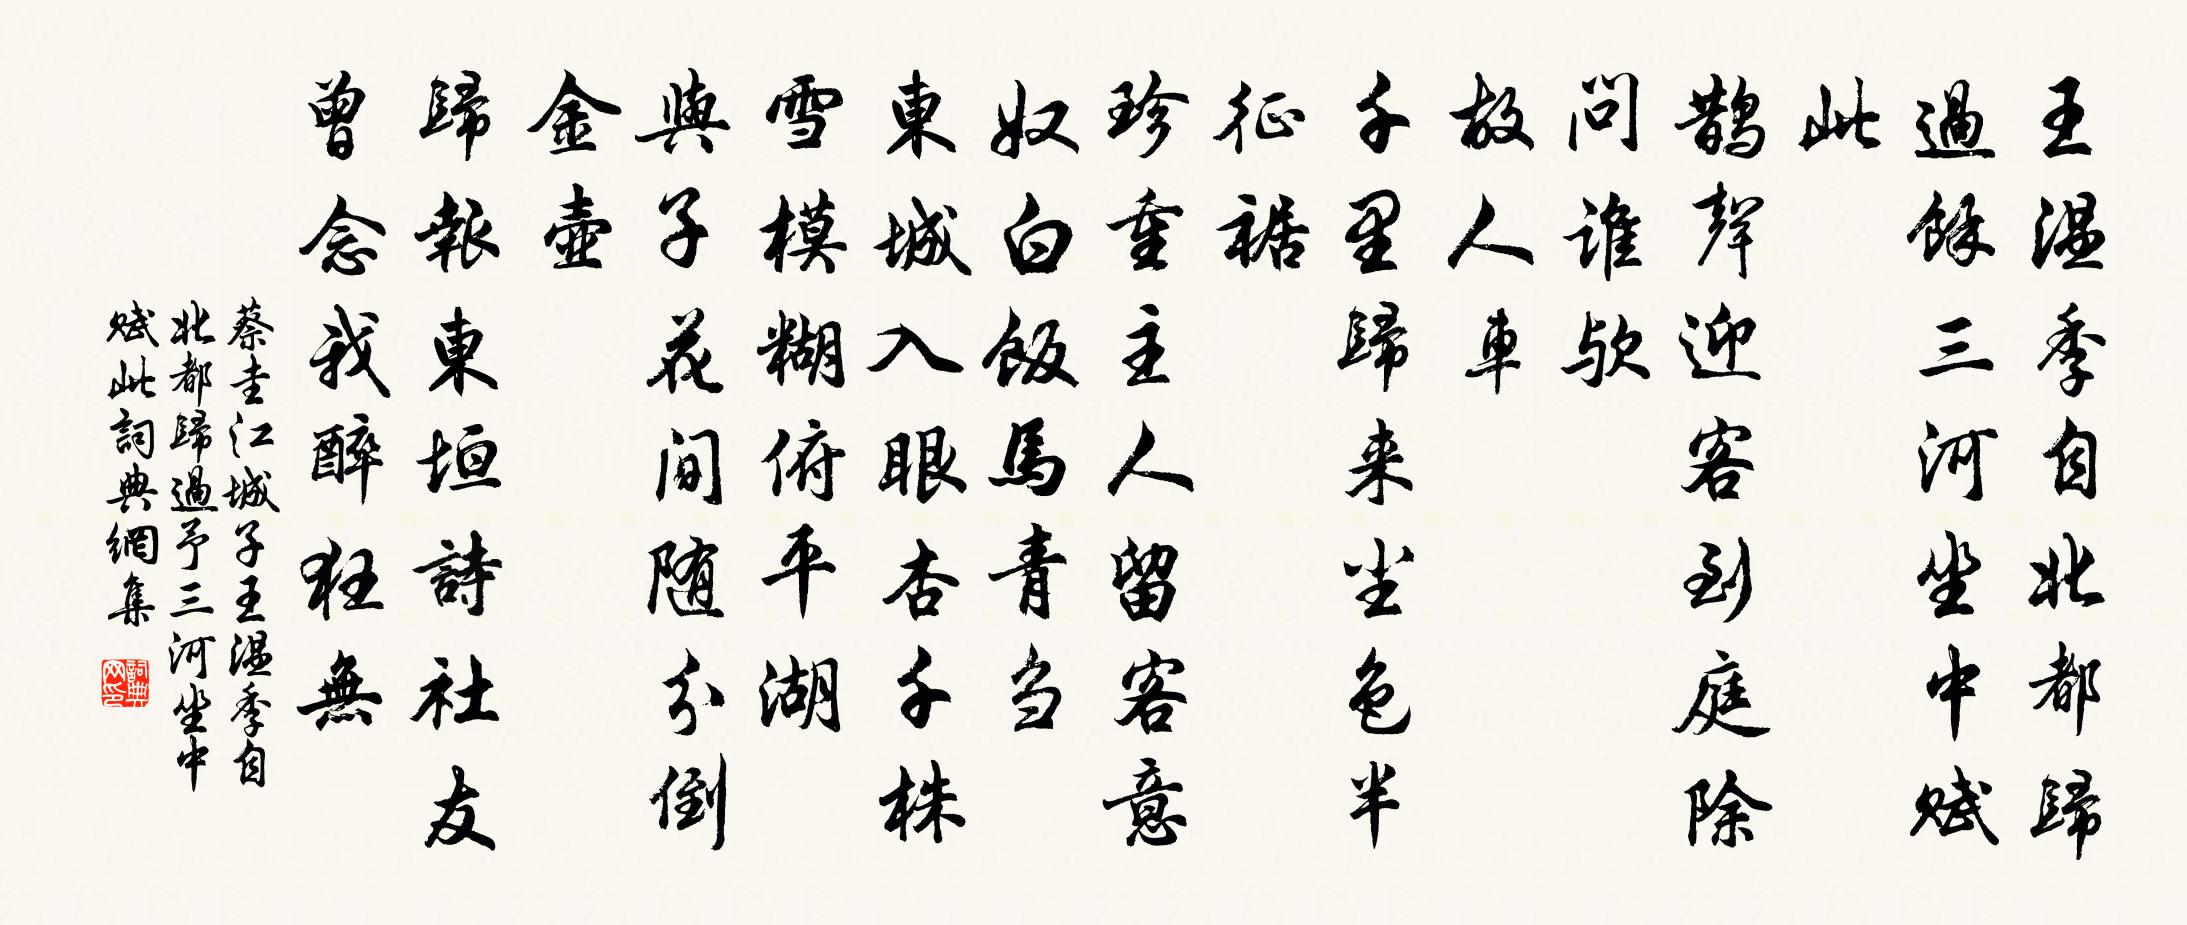 王温季自北都歸
過餘三河坐中賦
此
鵲聲迎客到庭除
問誰歟
故人車
千里歸来尘色半
征裾
珍重主人留客意
奴白飯馬青刍
東城入眼杏千株
雪模糊俯平湖
與子花间随分倒
金壺
歸報東垣詩社友
曾念我醉狂無
蔡圭江城子王温季自
北都歸過予三河坐中
賦此詞典網集
詞典网印